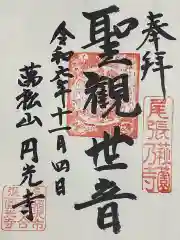 奉拝
聖観世音
令和六年十一月四日
萬松山円光寺